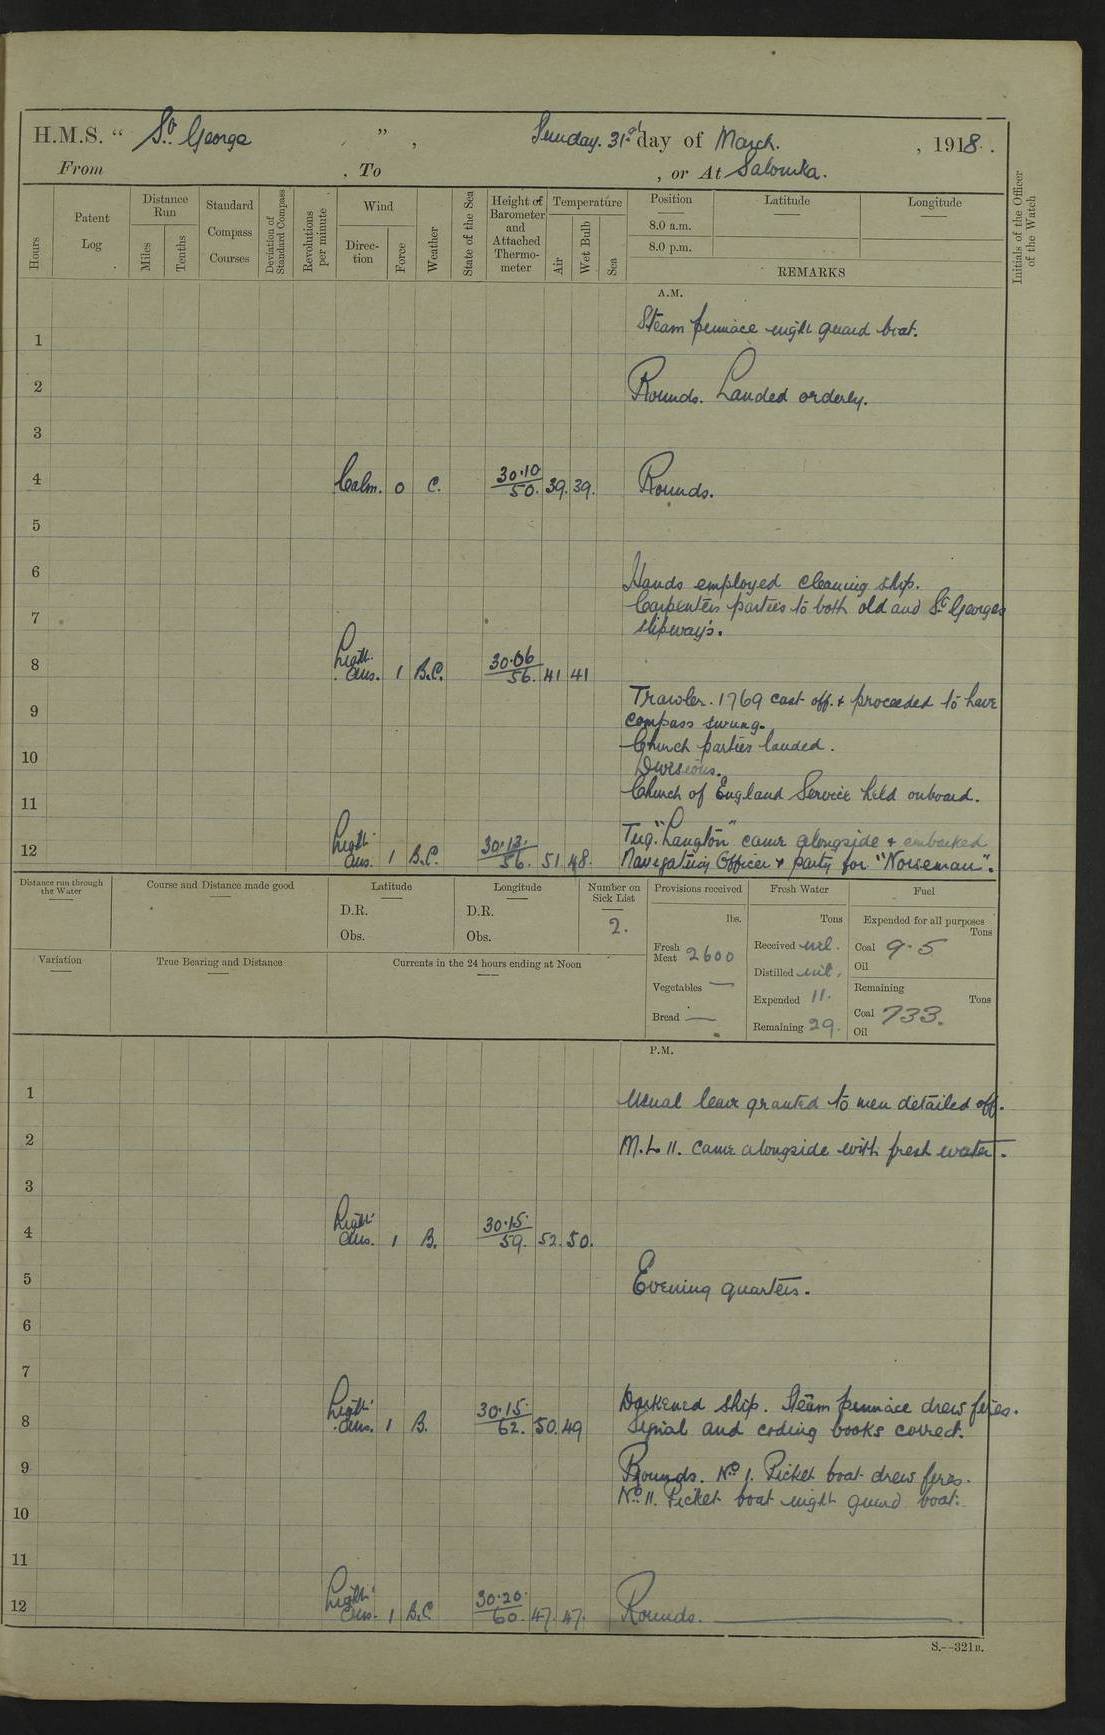 H.M.S. “ St. George ” , Sunday. 31st day of March. , 1918.
From , To , or At Salonika.
Hours
Patent Log
Distance Run
Miles
Tenths
Standard Compass Courses
Deviation of Standard Compass
Revolutions per minute
Wind
Direction
Force
Weather
State of the Sea
Height of Barometer and Attached Thermometer
Temperature
Air
Wet Bulb
Sea
Position
8.0 a.m.
8.0 p.m.
Latitude
Longitude
REMARKS
Initials of the Officer of the Watch
A.M.
1 Steam pinnace night guard boat.
2 Rounds. Landed orderly.
3
4 Calm. 0 C. 30·10 50. 39. 39. Rounds.
5
6 Hands employed cleaning ship.
Carpenters parties to both old and St. Georges
7 slipway's.
8 Light Airs. 1 B.C. 30·06 56. 41 41
Trawler. 1769 cast off. & proceeded to have
9 compass swung.
Church parties landed.
10 Divisions.
11 Church of England Service held onboard.
Tug. "Langton" came alongside & embarked
12 Light Airs. 1 B.C. 30·13. 56. 51 48. Navigating Officer & party for "Norseman".
Distance run through the Water
Course and Distance made good
Latitude
D.R.
Obs.
Longitude
D.R.
Obs.
Number on Sick List
2.
Provisions received
lbs.
Fresh Meat 2600
Vegetables —
Bread —
Fresh Water
Tons
Received nil.
Distilled nil.
Expended 11.
Remaining 29.
Fuel
Expended for all purposes
Tons
Coal 9·5
Oil
Remaining
Tons
Coal 733.
Oil
Variation
True Bearing and Distance
Currents in the 24 hours ending at Noon
P.M.
1 Usual leave granted to men detailed off.
2 M.L 11. came alongside with fresh water.
3
4 Light Airs. 1 B. 30·15. 59. 52. 50.
5 Evening quarters.
6
7
Darkened ship. Steam pinnace drew fires.
8 Light Airs. 1 B. 30·15. 62. 50. 49 Signal and coding books correct.
9 Rounds. No. 1. Picket boat drew fires.
No. 11. Picket boat night guard boat.
10
11
12 Light Airs. 1 B.C. 30·20. 60. 47. 47. Rounds.
S.—321B.